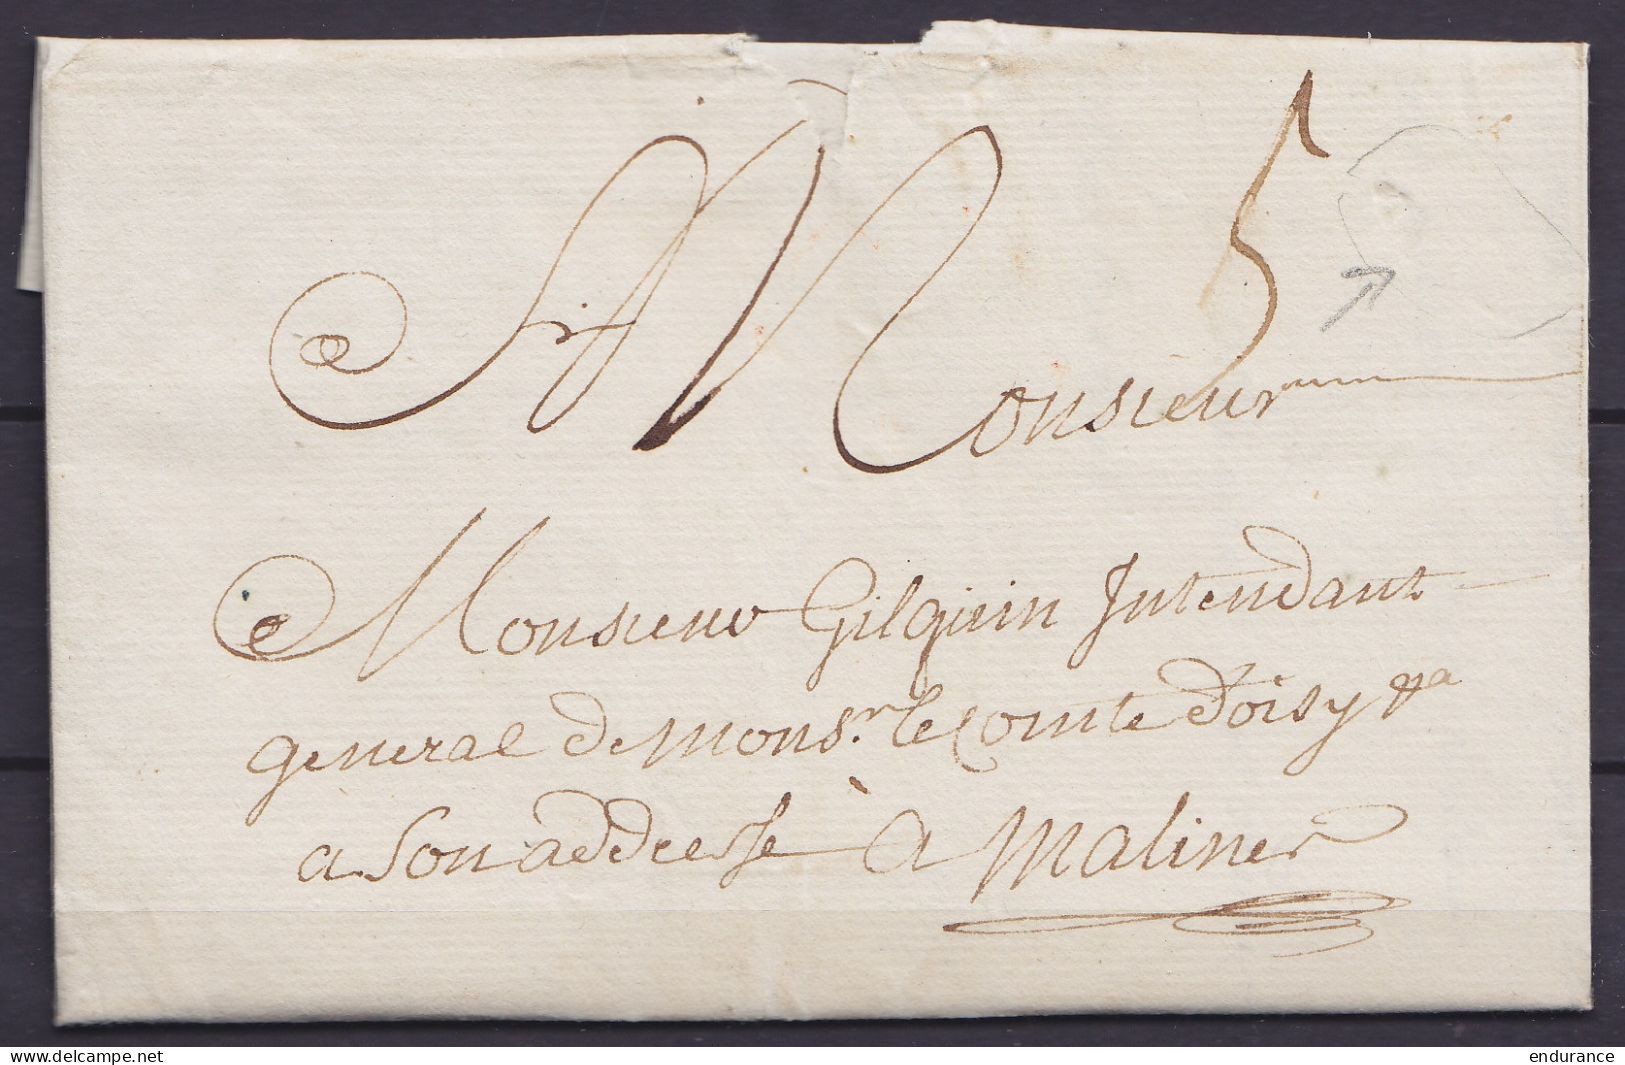 5
Monsieur
Monsieur Gilquin Intendant
general de mons.r le comte d'oisy &a
a son addresse à Malines
endurance